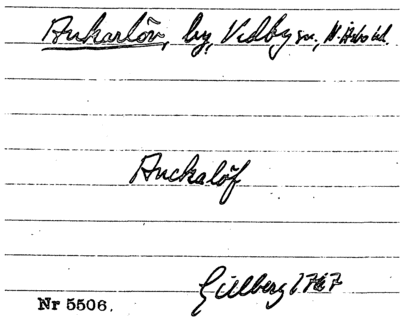 Ankarlöv, by, Vidby sn., N. Åsbo hd.
Anckalöf
Gillberg 1767
Nr 5506.